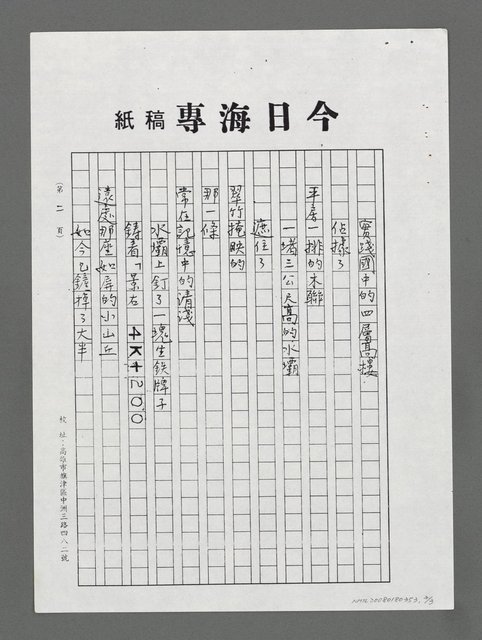 今日海專稿紙
實踐國中的四層高樓
佔據了
平房一排的木聯
一堵三公尺高的水壩
遮住了
翠竹掩映的
那一條
常在記憶中的清淺
水壩上釘了一塊生鉄牌子
鑄着「景左 4K+200
遠處那座如屏的小山丘
如今已鏟掉了大半
(第二頁)
校址：高雄市旗津區中洲三路四八二號